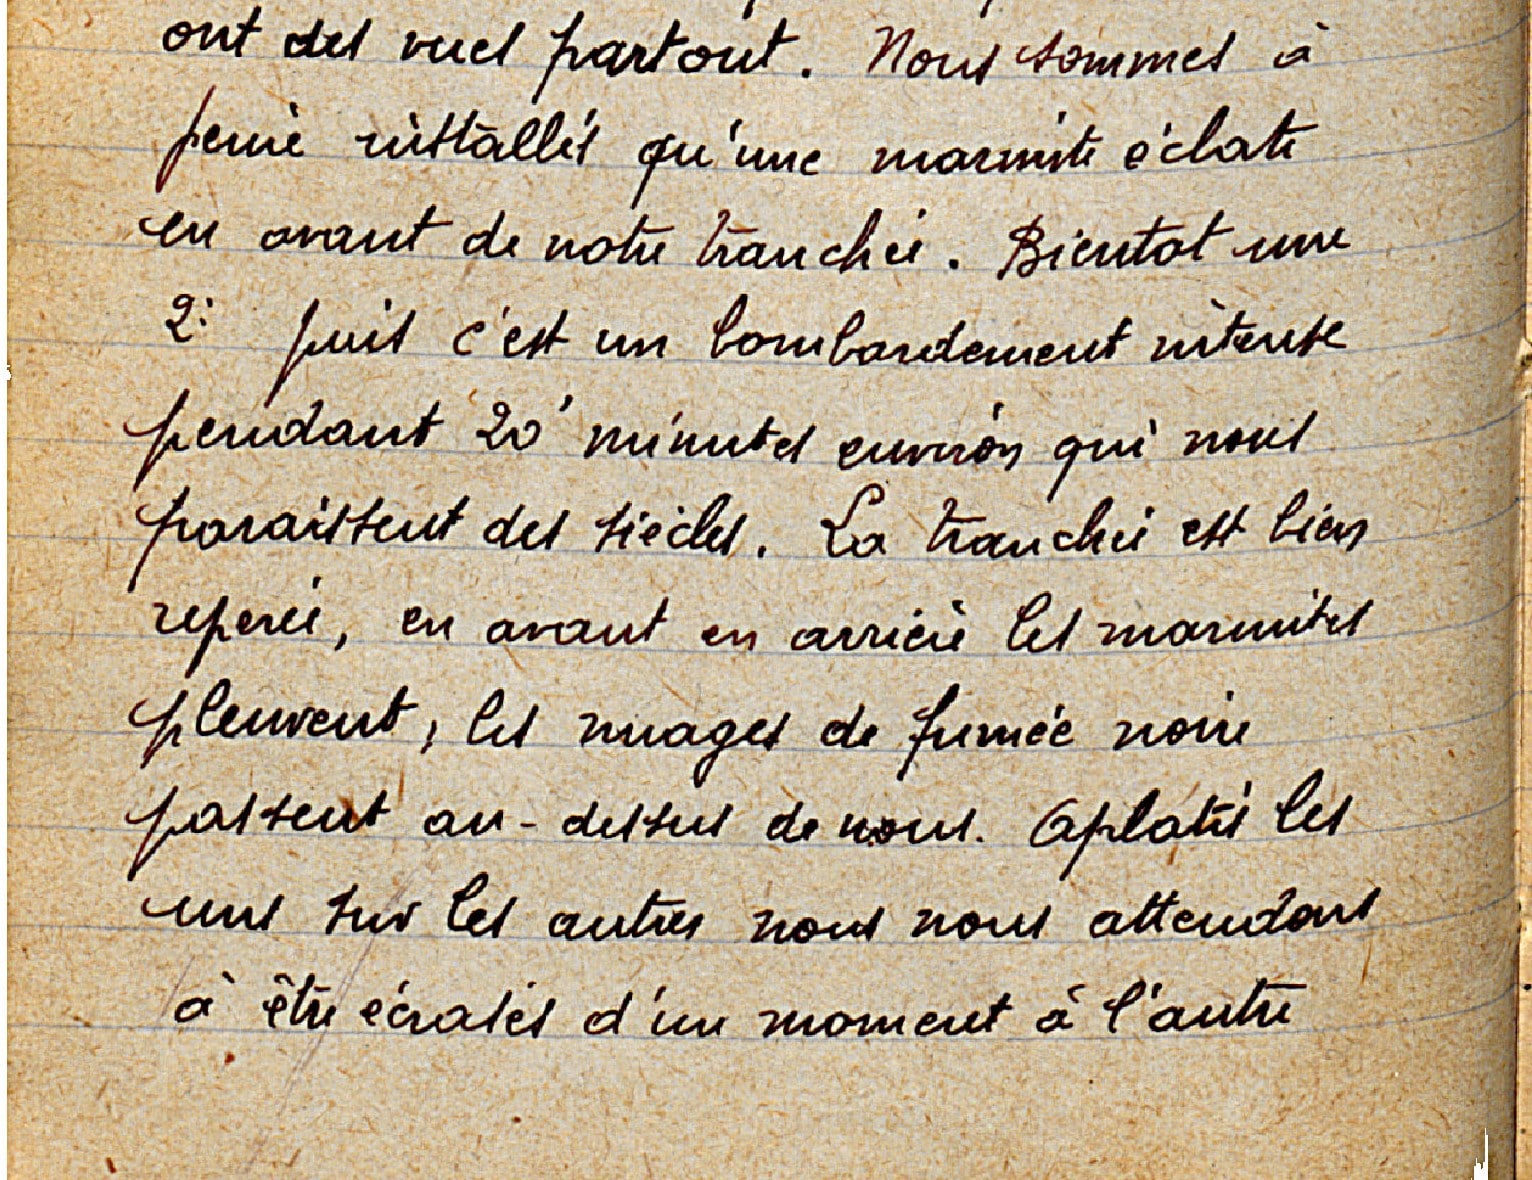 ont des vues partout. Nous sommes à
peine installés qu'une marmite éclate
en avant de notre tranchée. Bientot une
2e puis c'est un bombardement intense
pendant 20' minutes environ qui nous
paraissent des siècles. La tranchée est bien
reperée, en avant en arrière les marmites
pleuvent, les nuages de fumée noire
passent au-dessus de nous. Aplatis les
uns sur les autres nous nous attendons
à être écrasés d'un moment à l'autre